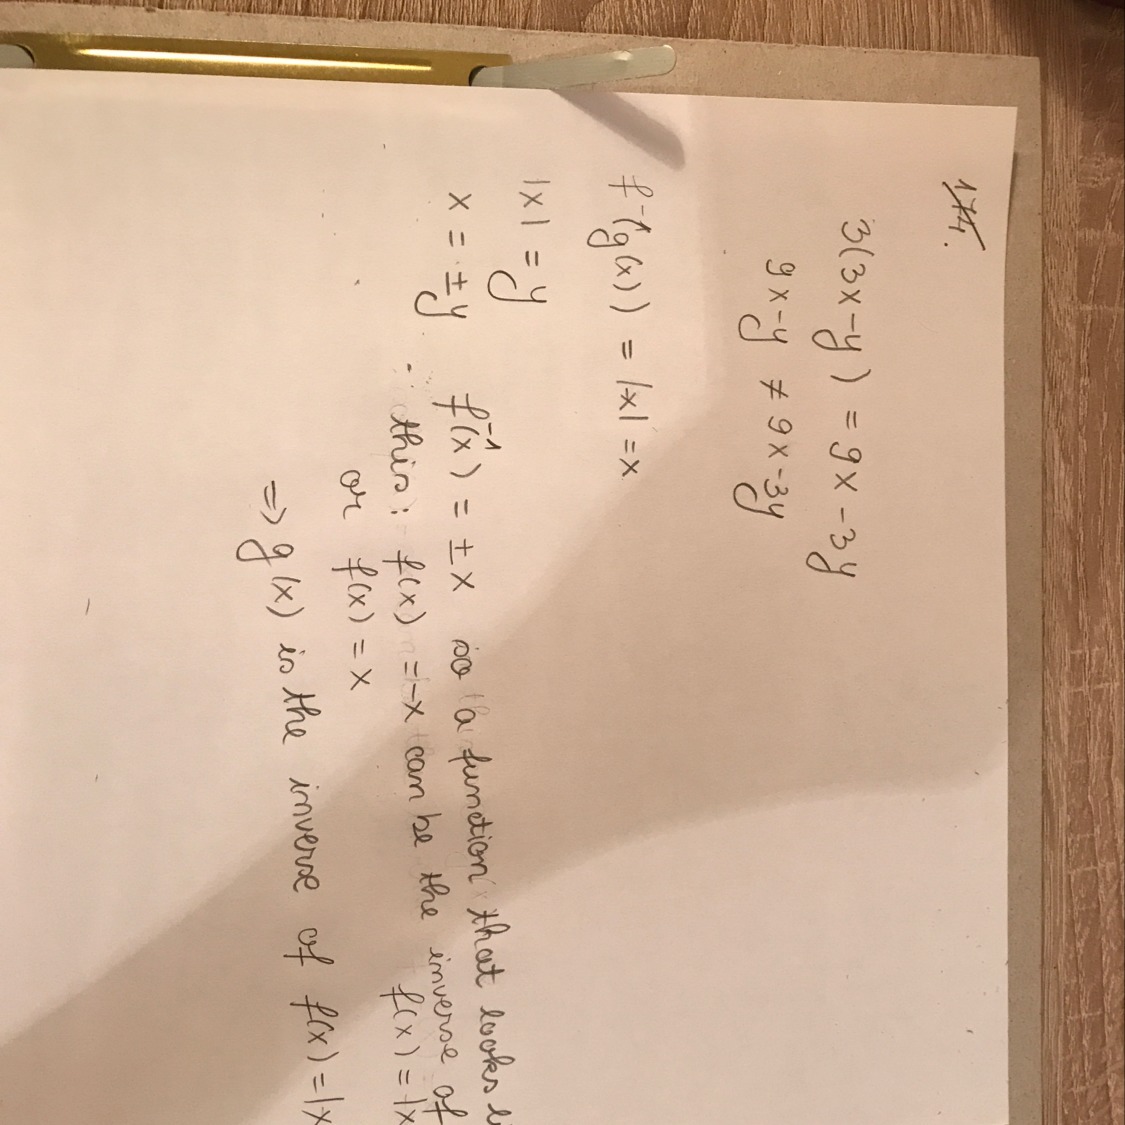 174.
3(3x-y) = 9x-3y
9x-y ≠ 9x-3y
f⁻¹(g(x)) = |x| = x
|x| = y
x = ±y f⁻¹(x) = ±x so a function that looks
this: f(x) = -x can be the inverse of
or f(x) = x f(x) = |x
⇒ g(x) is the inverse of f(x) = |x